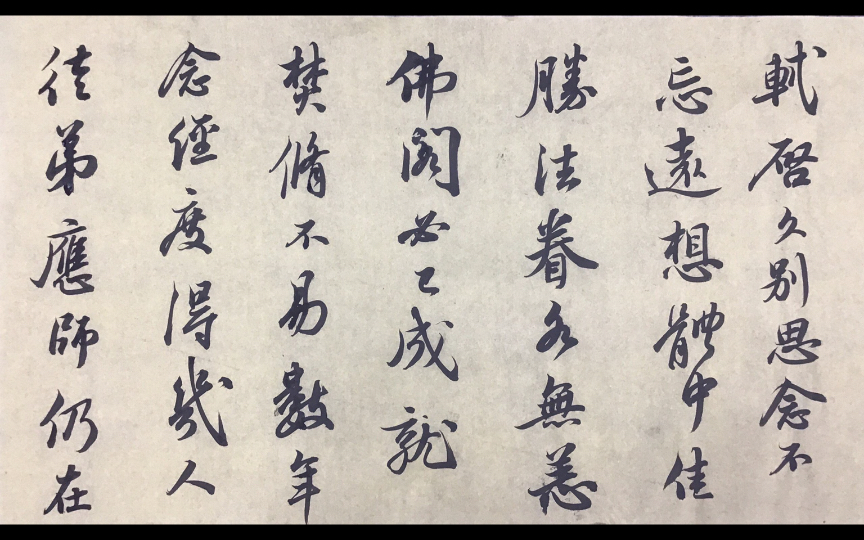 軾啓久别思念不
忘遠想體中佳
勝法眷各無恙
佛閣必已成就
焚脩不易數年
念經度得幾人
徒弟應師仍在